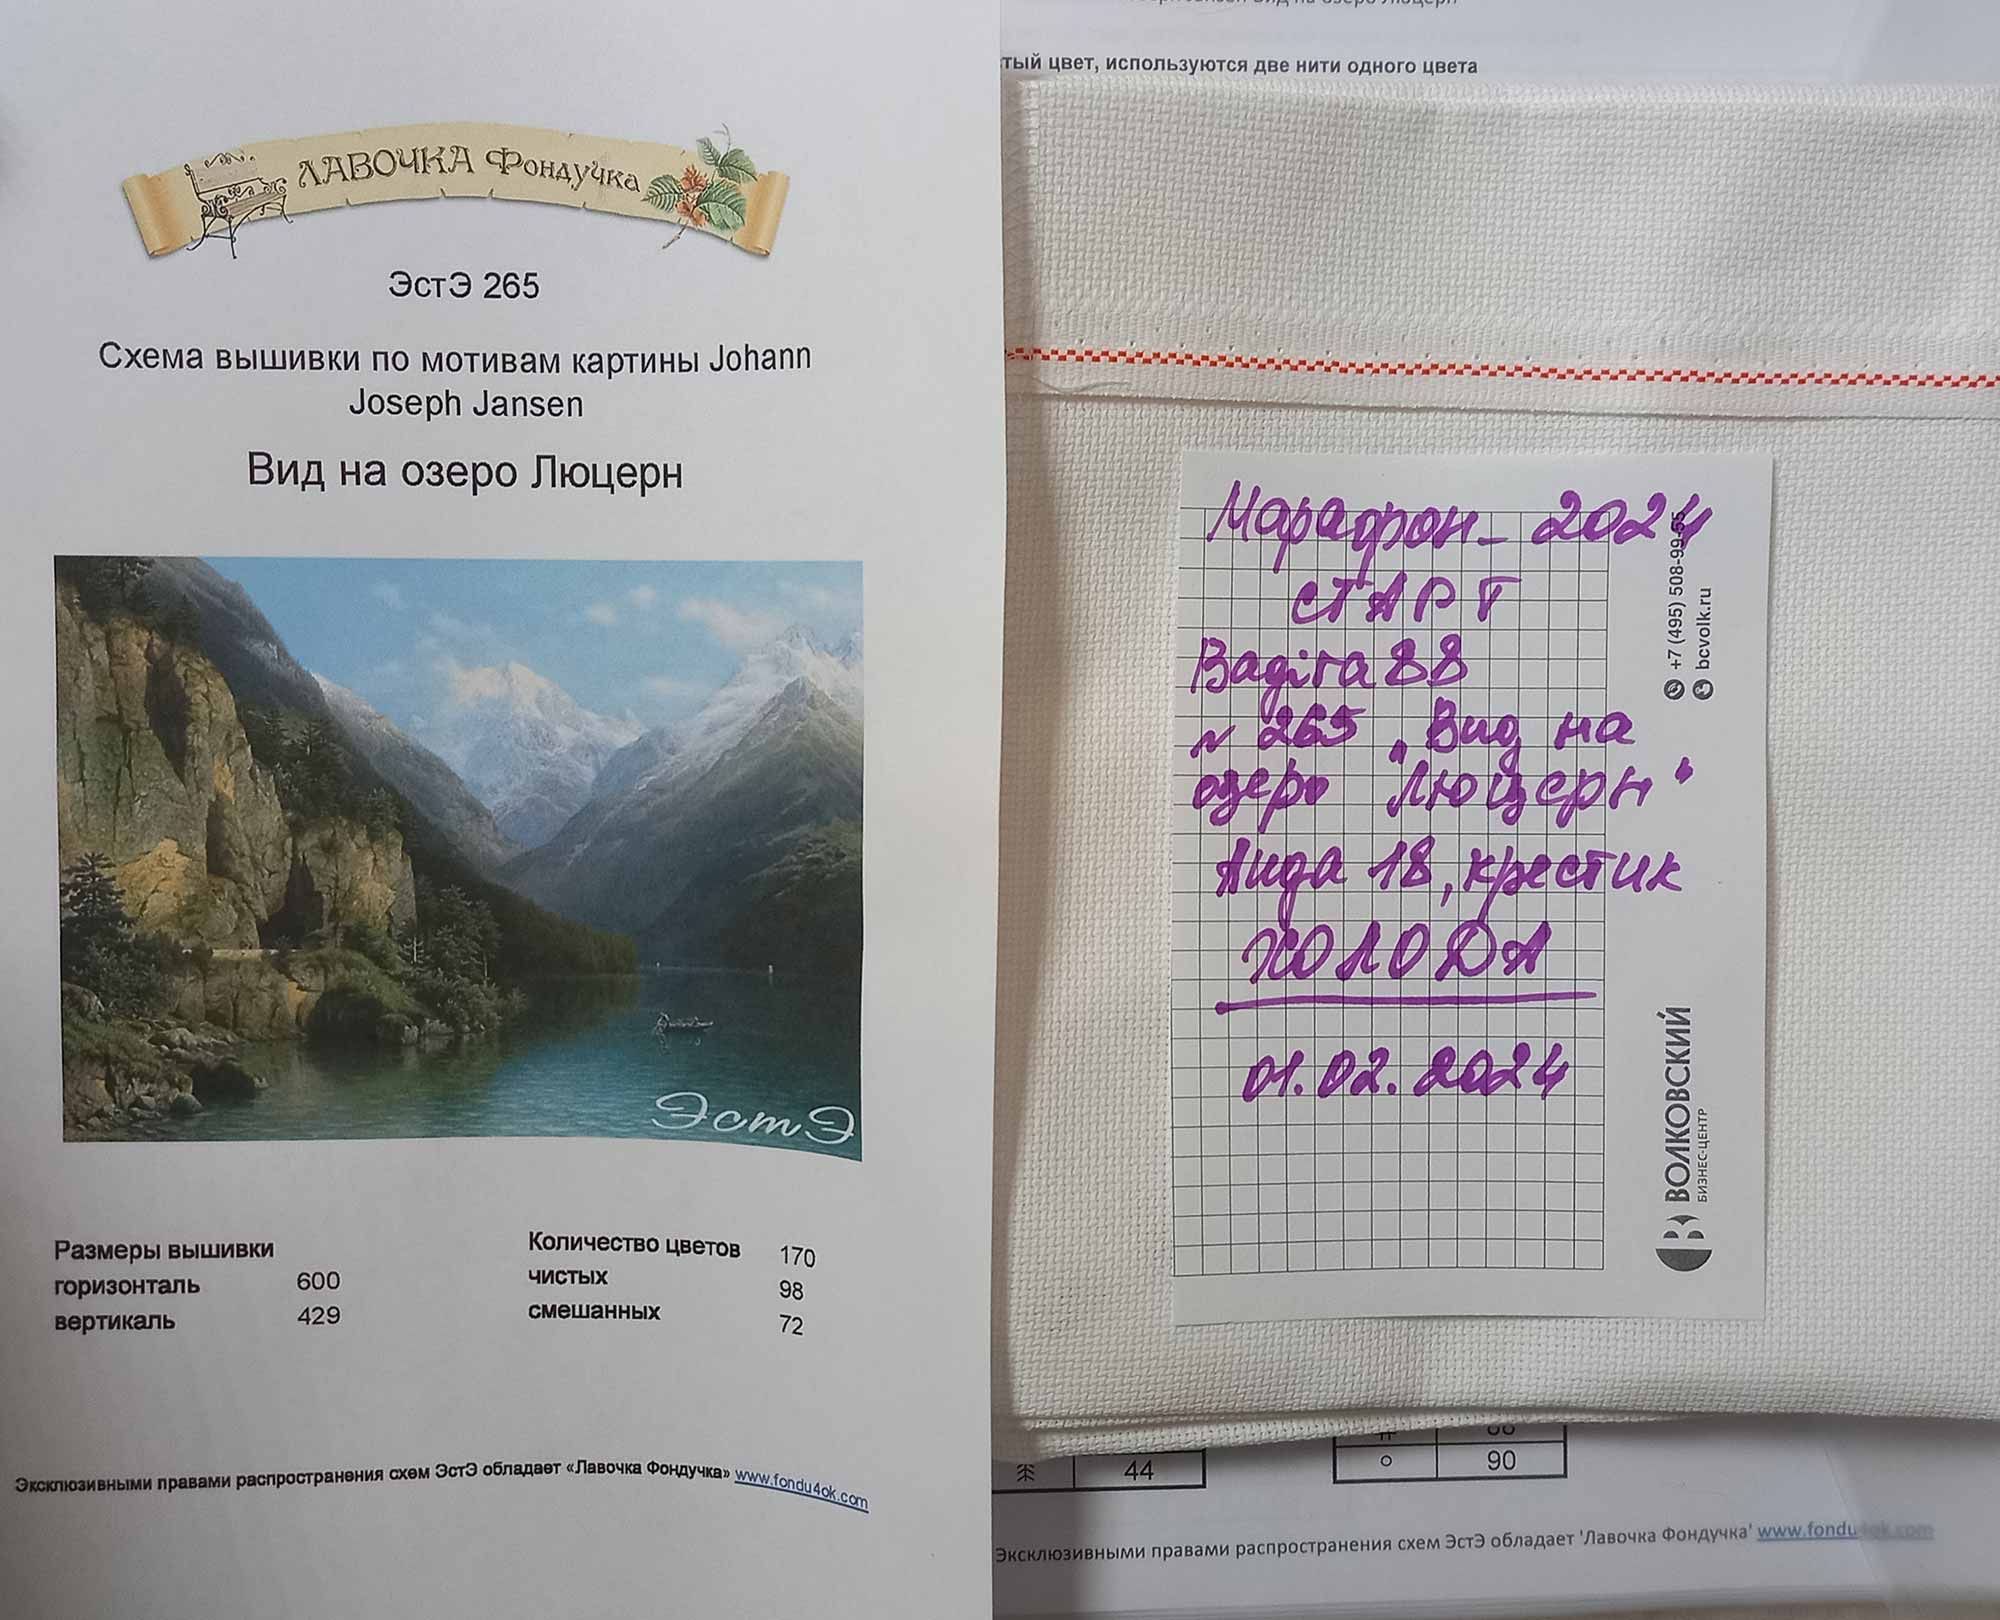 ЛАВОЧКА Фондучка
ЭстЭ 265
Схема вышивки по мотивам картины Johann
Joseph Jansen
Вид на озеро Люцерн
ЭстЭ
Размеры вышивки
горизонталь 600
вертикаль 429
Количество цветов 170
чистых 98
смешанных 72
Эксклюзивными правами распространения схем ЭстЭ обладает «Лавочка Фондучка» www.fondu4ok.com
Вид на озеро Люцерн
тый цвет, используются две нити одного цвета
Марафон - 2024
СТАРТ
Bagira88
№ 265 „Вид на
озеро Люцерн“
Аида 18, крестик
ХОЛОДА
01.02.2024
+7 (495) 508-99-55
bcvolk.ru
ВОЛКОВСКИЙ
БИЗНЕС-ЦЕНТР
44
90
Эксклюзивными правами распространения схем ЭстЭ обладает 'Лавочка Фондучка' www.fondu4ok.com